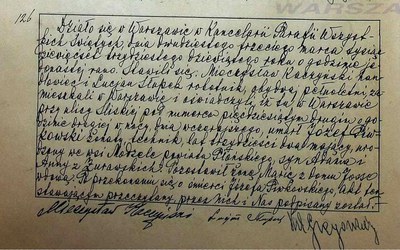 126
Działo się w Warszawie w Kancelarji Parafji Wszyst-
kich Świętych, dnia dwudziestego trzeciego marca tysiąc
dziewięćset trzydziestego dziewiątego roku o godzinie je-
denastej rano. Stawili się: Mieczysław Raczyński han-
dlowiec i Lucjan Słapek robotnik, obydwaj pełnoletni za-
mieszkali w Warszawie i oświadczyli, że tu w Warszawie
przy ulicy Śliskiej pod numerem pięćdziesiątym drugim o go-
dzinie drugiej w nocy, dnia wczorajszego, umarł Józef
żonaty, technik, lat trzydzieści dwa mający, uro-
dzony we wsi powiatu Płońskiego, syn Adama i
Anny z Żurawskich. Pozostawił żonę Marję z domu
Po przekonaniu się o śmierci Józefa Akt ten
stawającym przeczytany, przez nich i Nas podpisany został.
Mieczysław Raczyński Lucjan